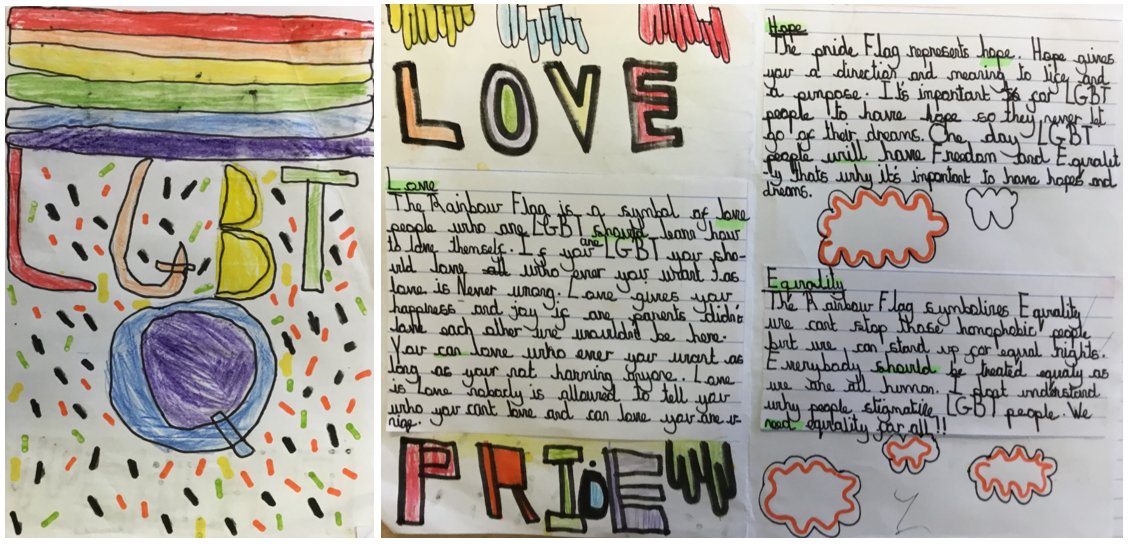 LGBT
Q
LOVE
Love
The Rainbow Flag is a symbol of love
people who are LGBT should learn how
to love themself. If you are LGBT you sho-
uld love all who ever you want to as
love is Never wrong. Love gives you
happiness and joy if are parents didn't
love each other we wouldn't be here.
You can love who ever you want as
long as your not harming anyone. Love
is Love nobody is allowed to tell you
who you cant love and can love you are
PRIDE
Hope
The pride Flag represents hope. Hope gives
you a direction and meaning to life and
a purpose. It's important for LGBT
people to have hope so they never let
go of their dreams. One day LGBT
people will have Freedom and Equalit
-ly thats why it's important to have hopes and
dreams.
Equality
The Rainbow Flag symbolises Equality
we cant stop those homophobic people
but we can stand up for equal rights.
Everybody should be treated equaly as
we are all human. I dont understand
why people stigmatise LGBT people. We
need equality for all!!